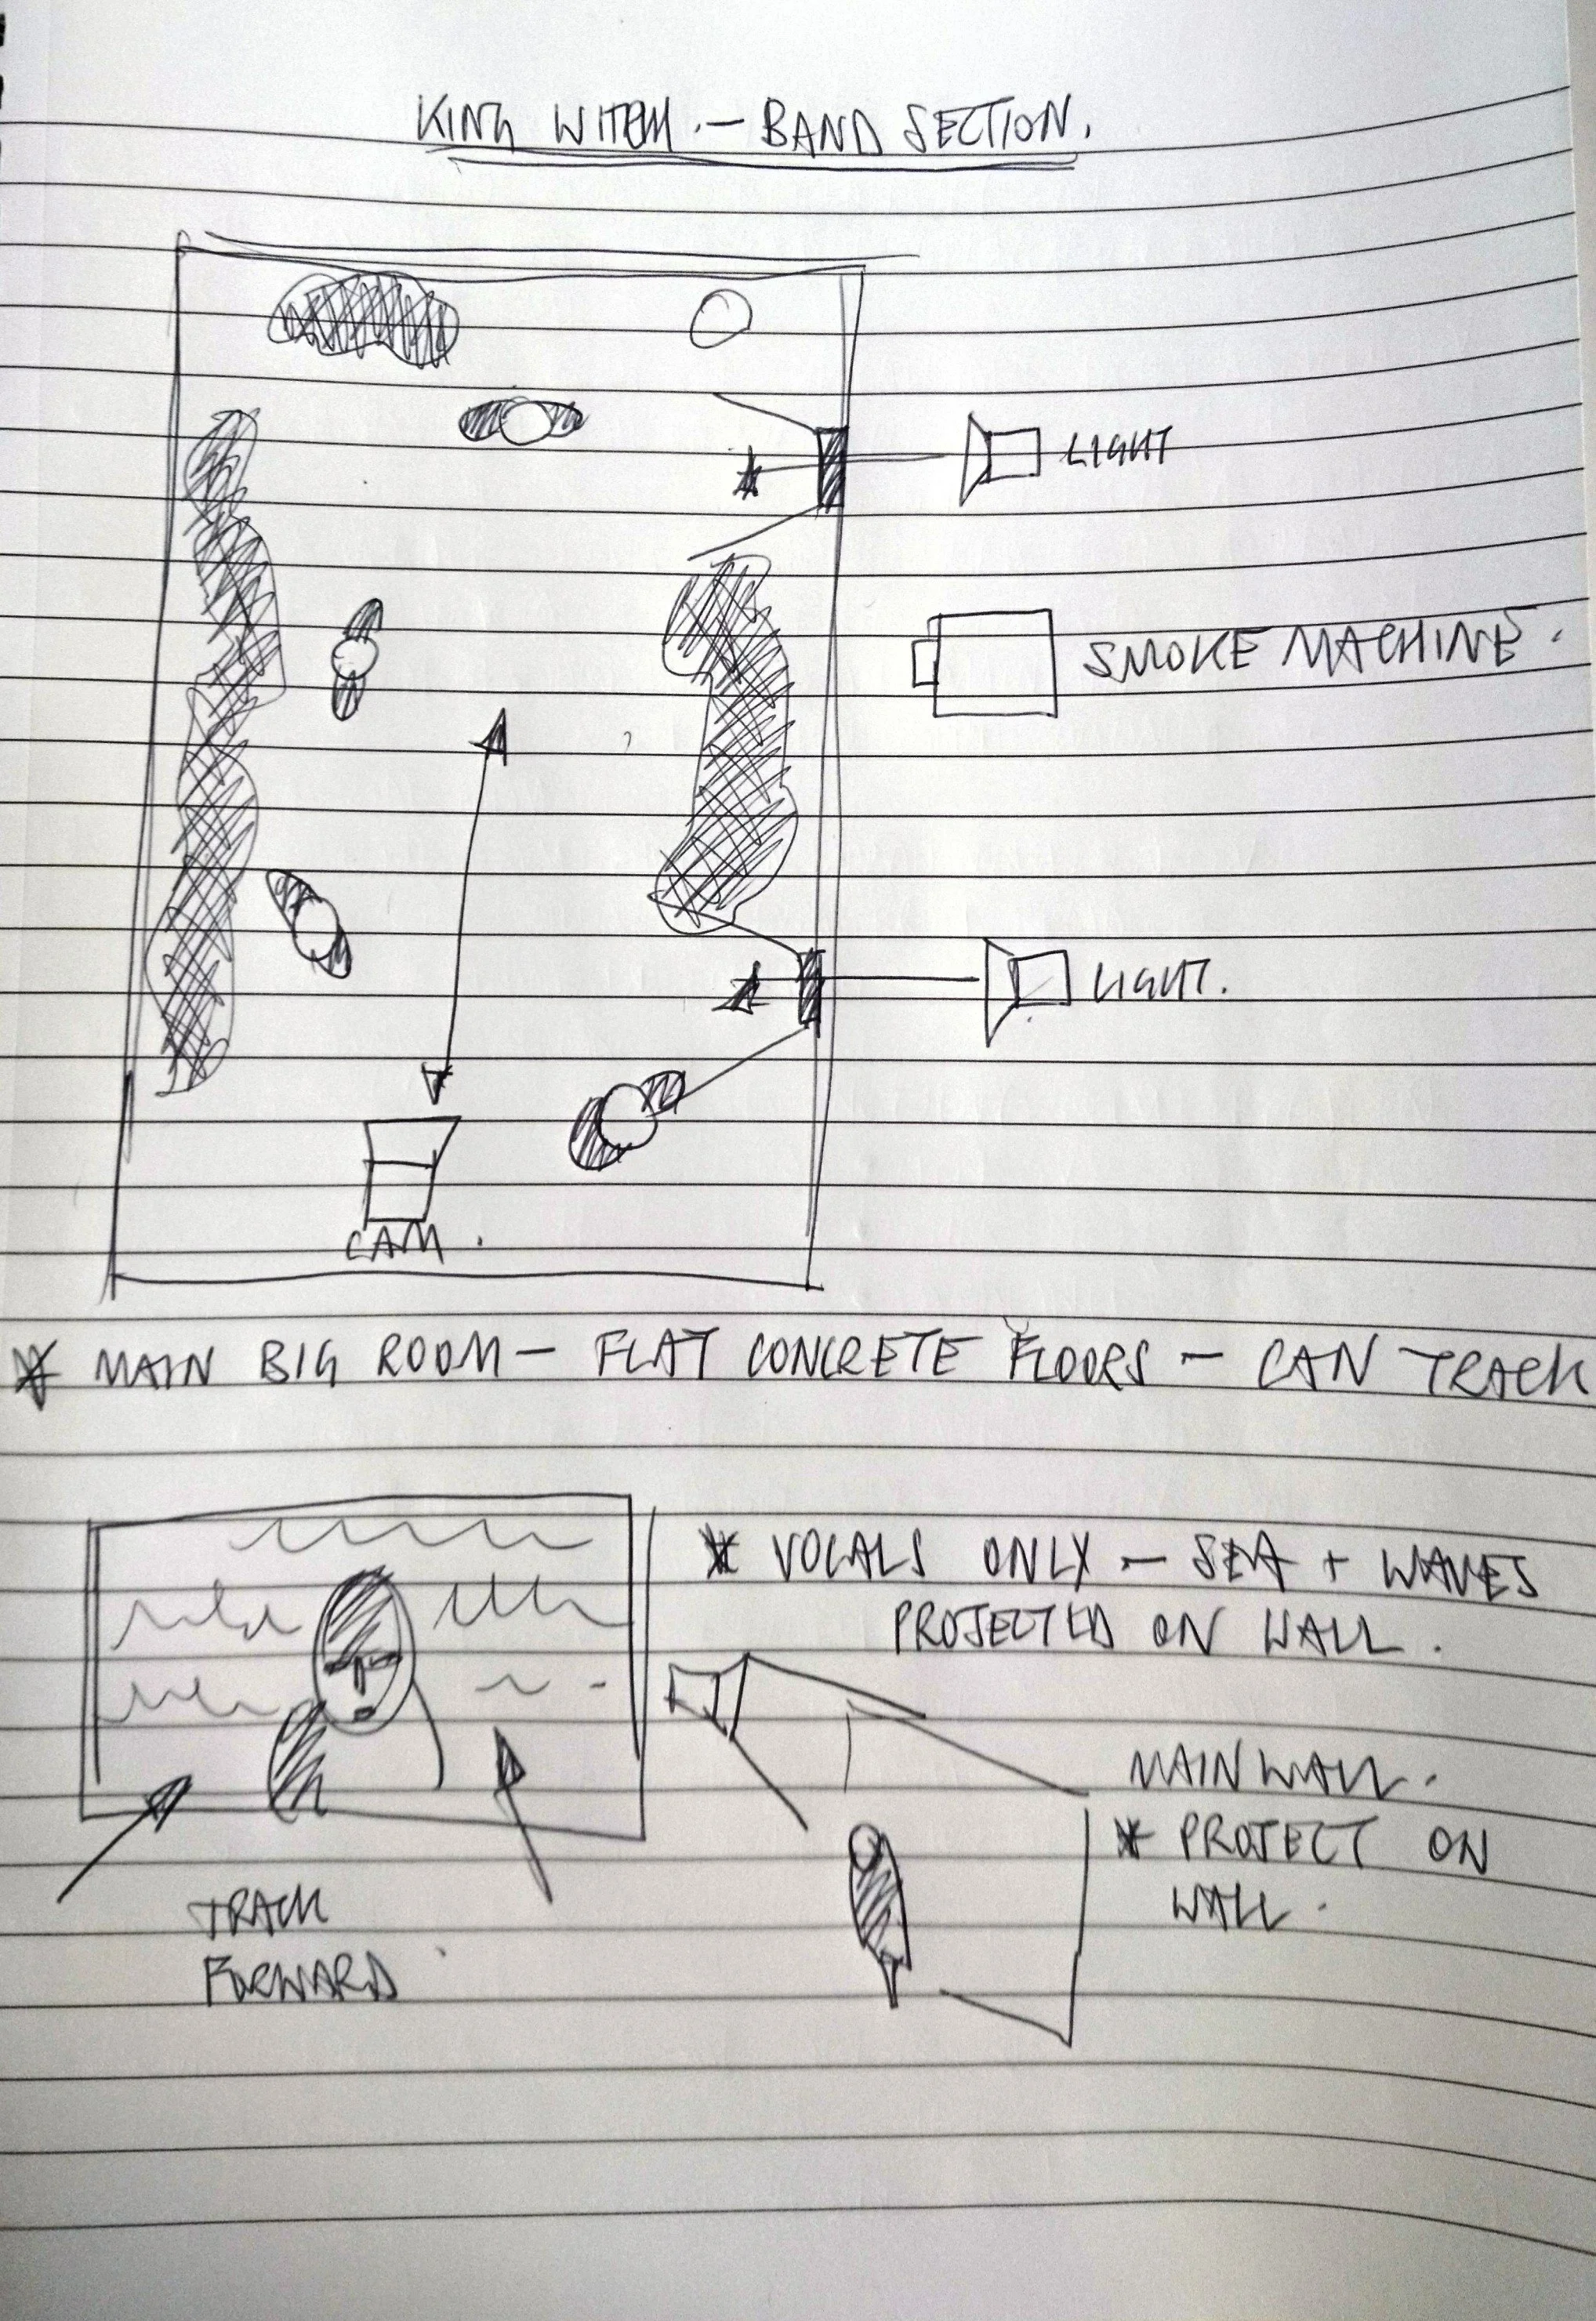 KING WITCH. - BAND SECTION.
LIGHT
SMOKE MACHINE.
LIGHT.
CAM.
* MAIN BIG ROOM - FLAT CONCRETE FLOORS - CAN TRACK
* VOCALS ONLY - SEA + WAVES
PROJECTED ON WALL.
MAIN WALL.
* PROJECT ON
WALL.
TRACK
FORWARD.